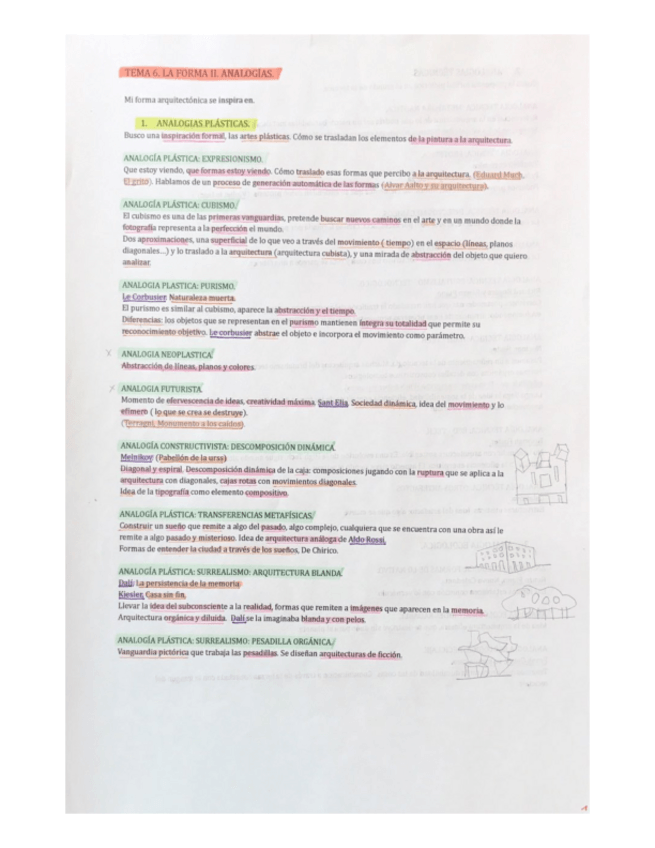 TEMA 6. LA FORMA II. ANALOGÍAS.
Mi forma arquitectónica se inspira en.
1. ANALOGIAS PLÁSTICAS.
Busco una inspiración formal, las artes plásticas. Cómo se trasladan los elementos de la pintura a la arquitectura.
ANALOGÍA PLÁSTICA: EXPRESIONISMO.
Que estoy viendo, que formas estoy viendo. Cómo traslado esas formas que percibo a la arquitectura. (Eduard Munch.
El grito). Hablamos de un proceso de generación automática de las formas (Alvar Aalto y su arquitectura).
ANALOGÍA PLÁSTICA: CUBISMO.
El cubismo es una de las primeras vanguardias, pretende buscar nuevos caminos en el arte y en un mundo donde la
fotografía representa a la perfección el mundo.
Dos aproximaciones, una superficial de lo que veo a través del movimiento ( tiempo) en el espacio (líneas, planos
diagonales...) y lo traslado a la arquitectura (arquitectura cubista), y una mirada de abstracción del objeto que quiero
analizar.
ANALOGIA PLASTICA: PURISMO.
Le Corbusier. Naturaleza muerta.
El purismo es similar al cubismo, aparece la abstracción y el tiempo.
Diferencias: los objetos que se representan en el purismo mantienen integra su totalidad que permite su
reconocimiento objetivo. Le corbusier abstrae el objeto e incorpora el movimiento como parámetro.
X ANALOGIA NEOPLASTICA
Abstracción de líneas, planos y colores.
ANALOGIA FUTURISTA.
Momento de efervescencia de ideas, creatividad máxima. Sant Elia. Sociedad dinámica, idea del movimiento y lo
efímero ( lo que se crea se destruye).
(Terragni, Monumento a los caídos).
ANALOGÍA CONSTRUCTIVISTA: DESCOMPOSICIÓN DINÁMICA
Melnikov (Pabellón de la urss)
Diagonal y espiral. Descomposición dinámica de la caja: composiciones jugando con la ruptura que se aplica a la
arquitectura con diagonales, cajas rotas con movimientos diagonales.
Idea de la tipografía como elemento compositivo.
ANALOGÍA PLÁSTICA: TRANSFERENCIAS METAFÍSICAS
Construir un sueño que remite a algo del pasado, algo complejo, cualquiera que se encuentra con una obra así le
remite a algo pasado y misterioso. Idea de arquitectura análoga de Aldo Rossi.
Formas de entender la ciudad a través de los sueños. De Chirico.
ANALOGÍA PLÁSTICA: SURREALISMO: ARQUITECTURA BLANDA
Dalí: La persistencia de la memoria
Kiesler. Casa sin fin.
Llevar la idea del subconsciente a la realidad, formas que remiten a imágenes que aparecen en la memoria.
Arquitectura orgánica y diluida. Dalí se la imaginaba blanda y con pelos.
ANALOGÍA PLÁSTICA: SURREALISMO: PESADILLA ORGÁNICA
Vanguardia pictórica que trabaja las pesadillas. Se diseñan arquitecturas de ficción.